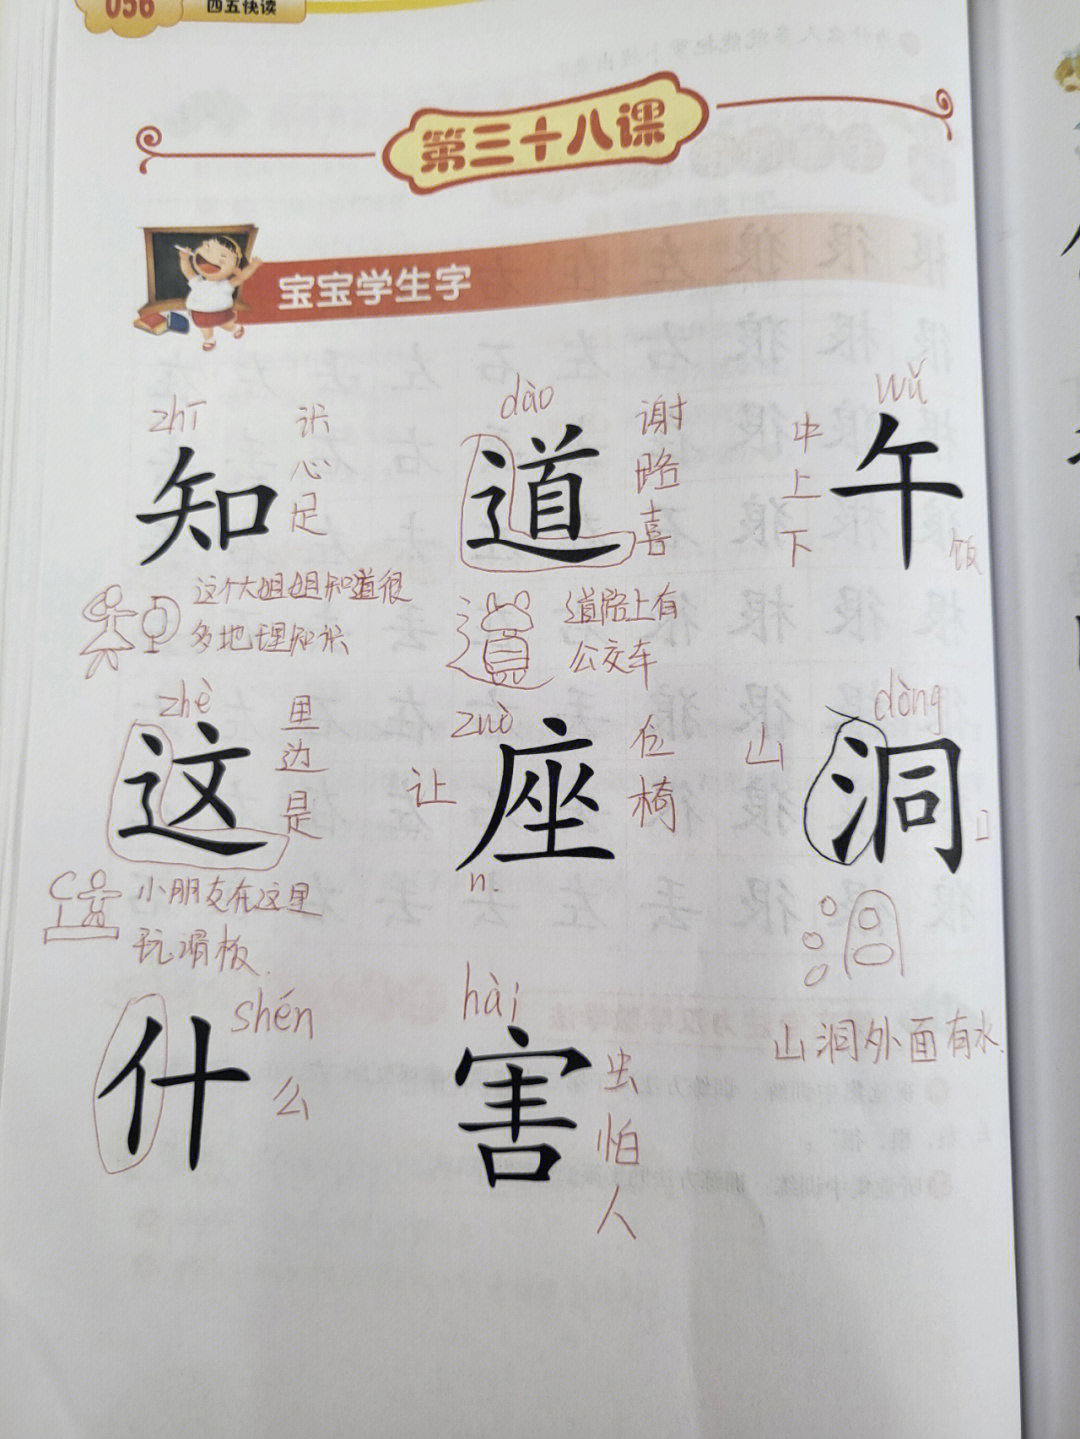 056
四五快读
第三十八课
宝宝学生字
zhī
知
识
心
足
dào
道
谢
路
喜
wǔ
中
上
下
午
饭
这个大姐姐知道很
多地理知识
道路上有
公交车
zhè
这
里
边
是
zuò
让
座
位
椅
n.
dòng
山
洞
口
小朋友在这里
玩滑板.
山洞外面有水.
shén
什
么
hài
害
虫
怕
人